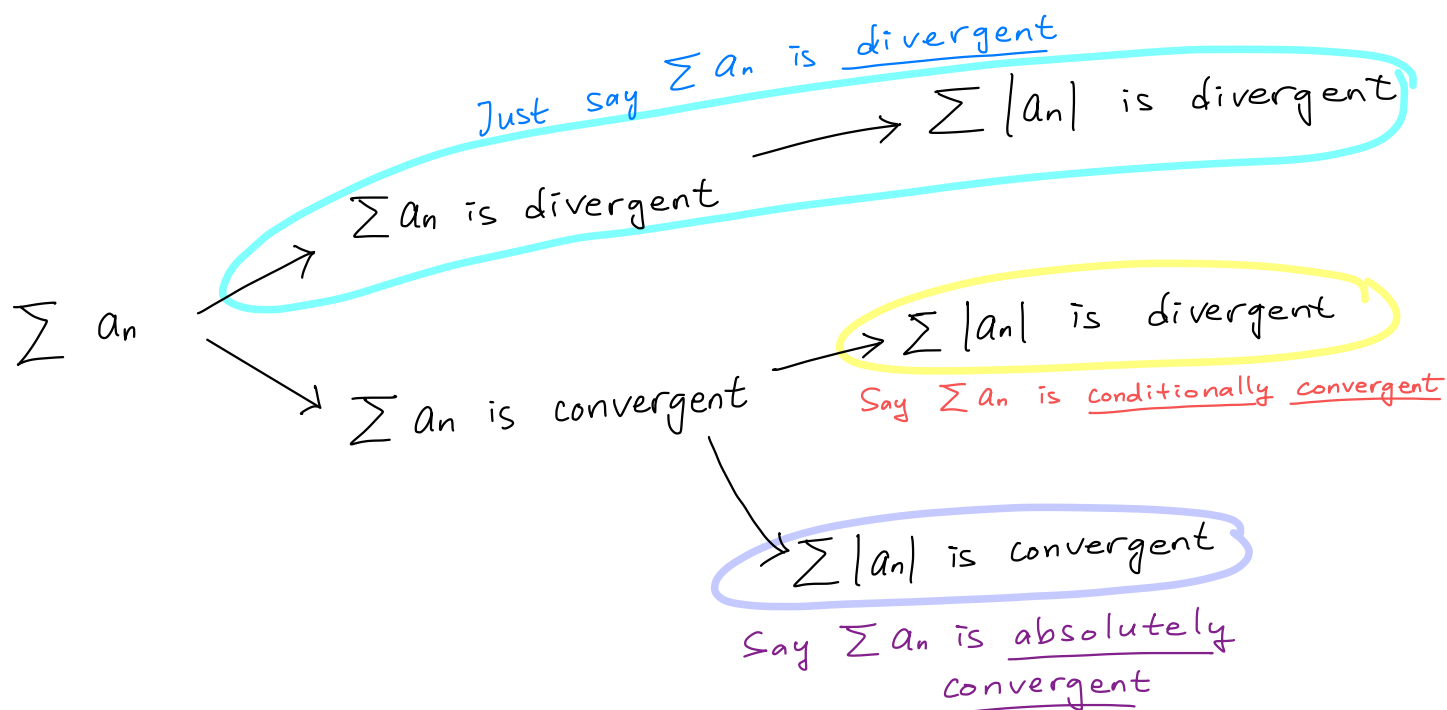 Just say ∑ aₙ is divergent
∑ |aₙ| is divergent
∑ aₙ is divergent
∑ aₙ
∑ |aₙ| is divergent
Say ∑ aₙ is conditionally convergent
∑ aₙ is convergent
∑ |aₙ| is convergent
Say ∑ aₙ is absolutely
convergent